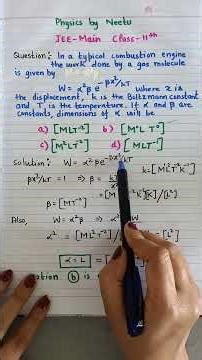 Physics by Neetu
JEE-Main Class-11th
Question: In a typical combustion engine
the work done by a gas molecule
is given by
W = α²βe^(-βx²/kT) where x is
the displacement, k is the Boltzmann constant
and T, is the temperature. If α and β are
constants, dimensions of α will be
a) [MLT⁻²] b) [M⁰LT⁰]
c) [M²LT⁻²] d) [MLT⁻¹]
Solution: W = α²βe^(-βx²/kT)
βx²/kT = 1 ⇒ β =
β = [MT⁻²]
Also, W = α²β ⇒ α²
α² = [ML²T⁻²]/ [L²]
α = L = [
b is